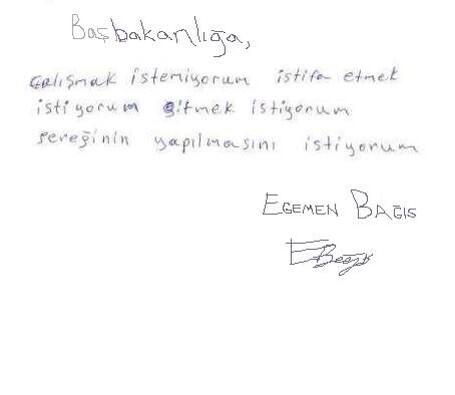 Başbakanlığa,
çalışmak istemiyorum istifa etmek
istiyorum gitmek istiyorum
gereğinin yapılmasını istiyorum
EGEMEN BAĞIS
EBağış